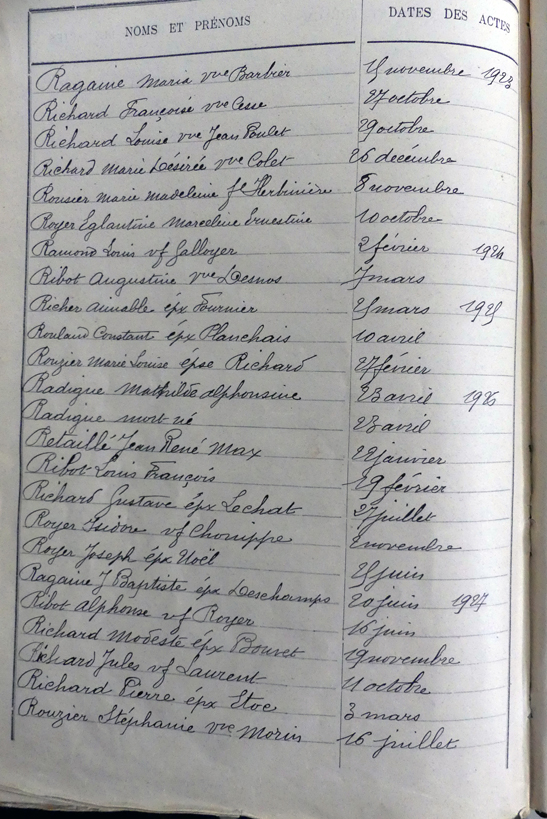 NOMS ET PRÉNOMS DATES DES ACTES
Ragaine Maria vve Barbier novembre 1923
Richard Françoise vve Cessé 27 octobre
Richard Louise vve Jean Poulet 29 octobre
Richard Marie Désirée vve Colet 26 décembre
Rousier Marie Madeleine fe Herbinière 8 novembre
Royer Eglantine Marceline Ernestine 10 octobre
Ramond Louis vf Galloyer 2 février 1924
Ribot Augustine vve Desnos 7 mars
Richer Aimable épx Fournier mars 1925
Rouland Constant épx Planchais 10 avril
Rouzier Marie Louise epse Richard 27 février
Radigue Mathilde alphonsine 23 avril 1926
Radigue mort né 23 avril
Retaillé Jean René Max janvier
Ribot Louis François 29 février
Richard Gustave épx Lechat 27 juillet
Royer Isidore vf Chorippe 2 novembre
Royer Joseph épx Noël juin
Ragaine J Baptiste épx Deschamps 20 juin 1927
Ribot Alphonse vf Royer 16 juin
Richard Modeste épx Bouvet 19 novembre
Richard Jules vf Laurent 11 octobre
Richard Pierre épx Stoc 3 mars
Rouzier Stéphanie vve Morin 16 juillet